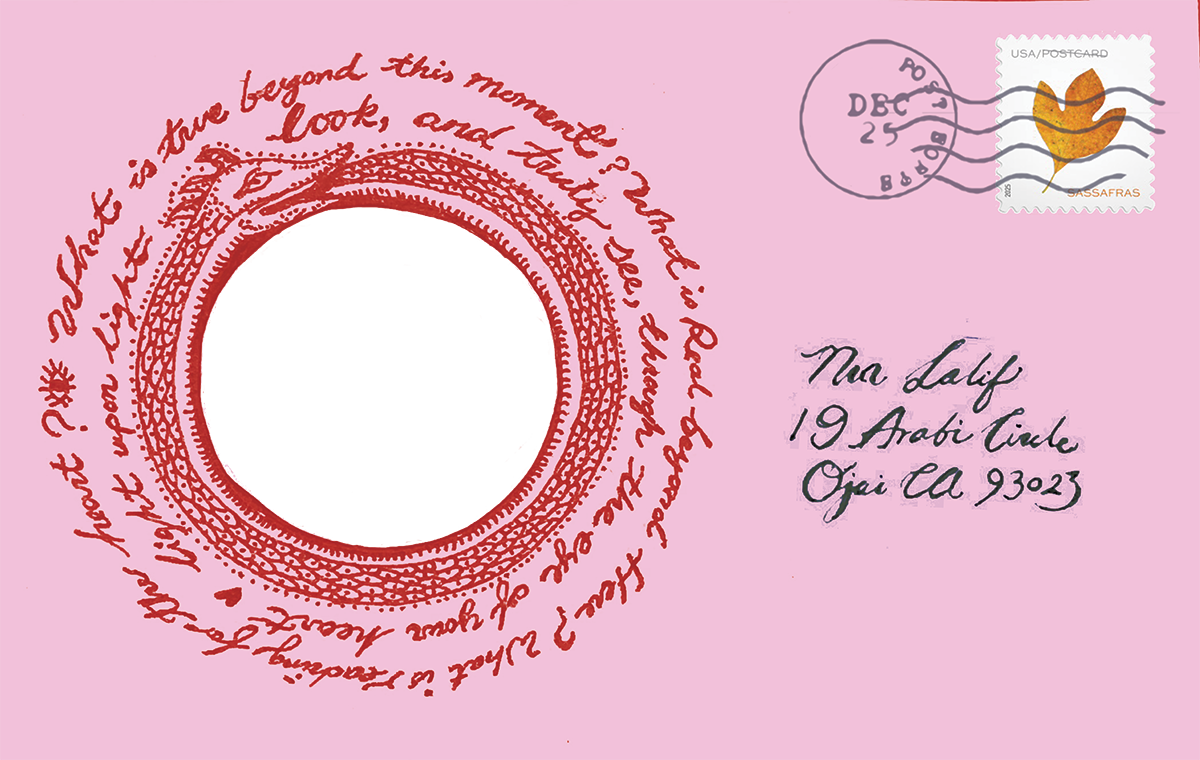 What is true beyond this moment? What is Real beyond Here? What is reaching for the heart?
look, and truly see, through the eye of your heart
light upon light
POST BORPB
DEC
25
USA/POSTCARD
2025
SASSAFRAS
Nur Lalif
19 Arabi Circle
Ojai CA 93023